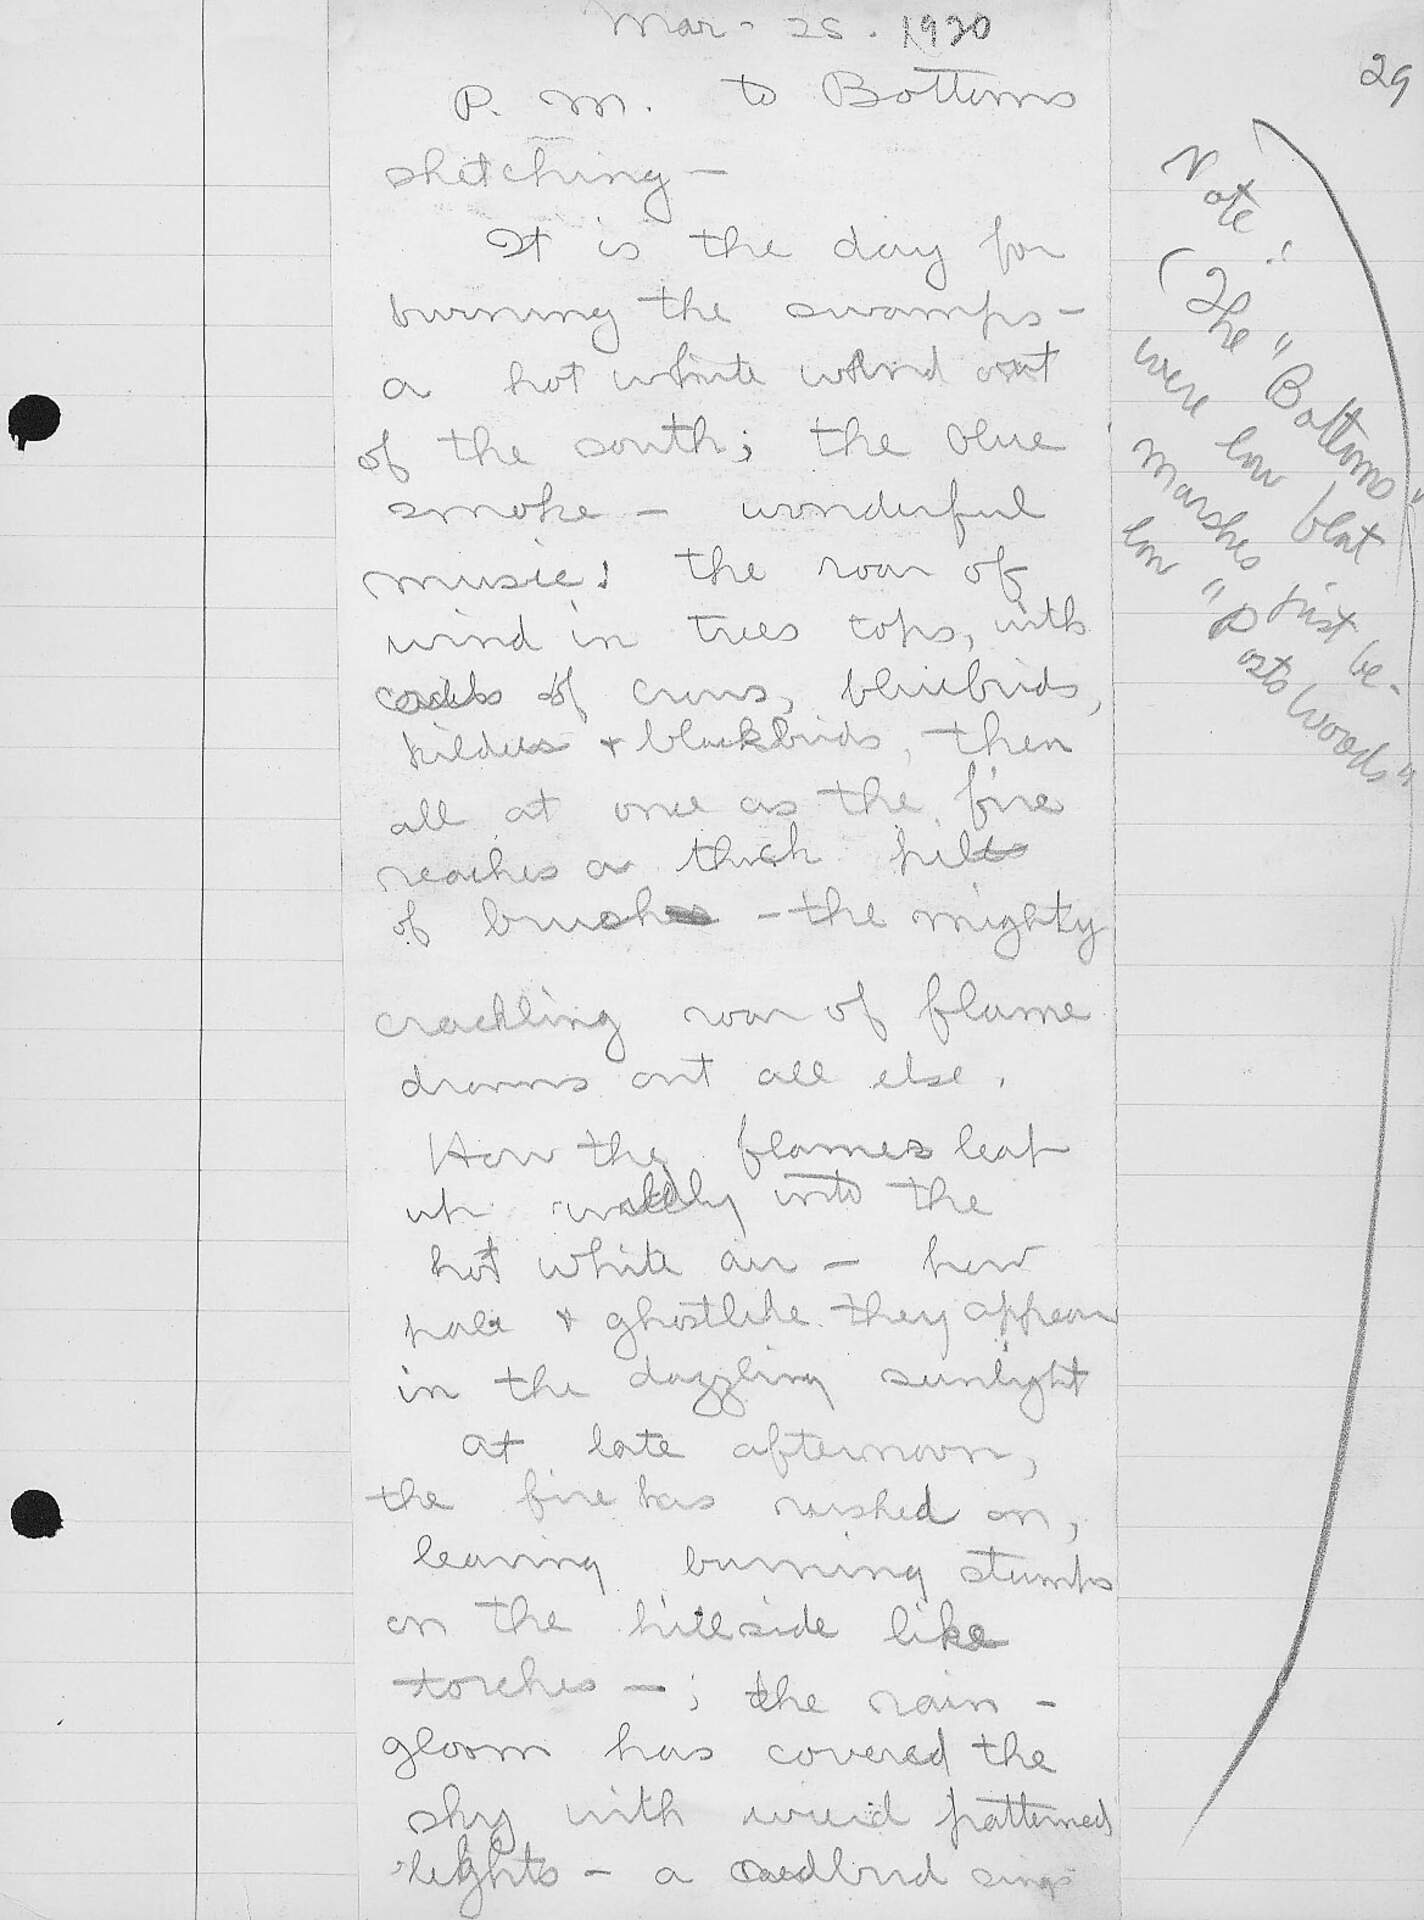 Mar - 25. 1920
29
P. M. to Bottoms
sketching —
It is the day for
burning the swamps —
a hot white wind out
of the south; the blue
smoke — wonderful
music! the roar of
wind in trees tops, with
of crows, bluebirds,
kildeer + blackbirds, then
all at once as the fire
reaches a thick pile
of brush — the mighty
crackling roar of flame
drowns out all else.
How the flames leap
up wildly into the
hot white air — how
pale + ghostlike they appear
in the dazzling sunlight
at late afternoon,
the fire has rushed on,
leaving burning stumps
on the hillside like
torches — ; the rain -
gloom has covered the
sky with weird patterned
lights — a redbird sings
Note:
(The "Bottoms"
were low flat
marshes just be-
low "Posts Woods"